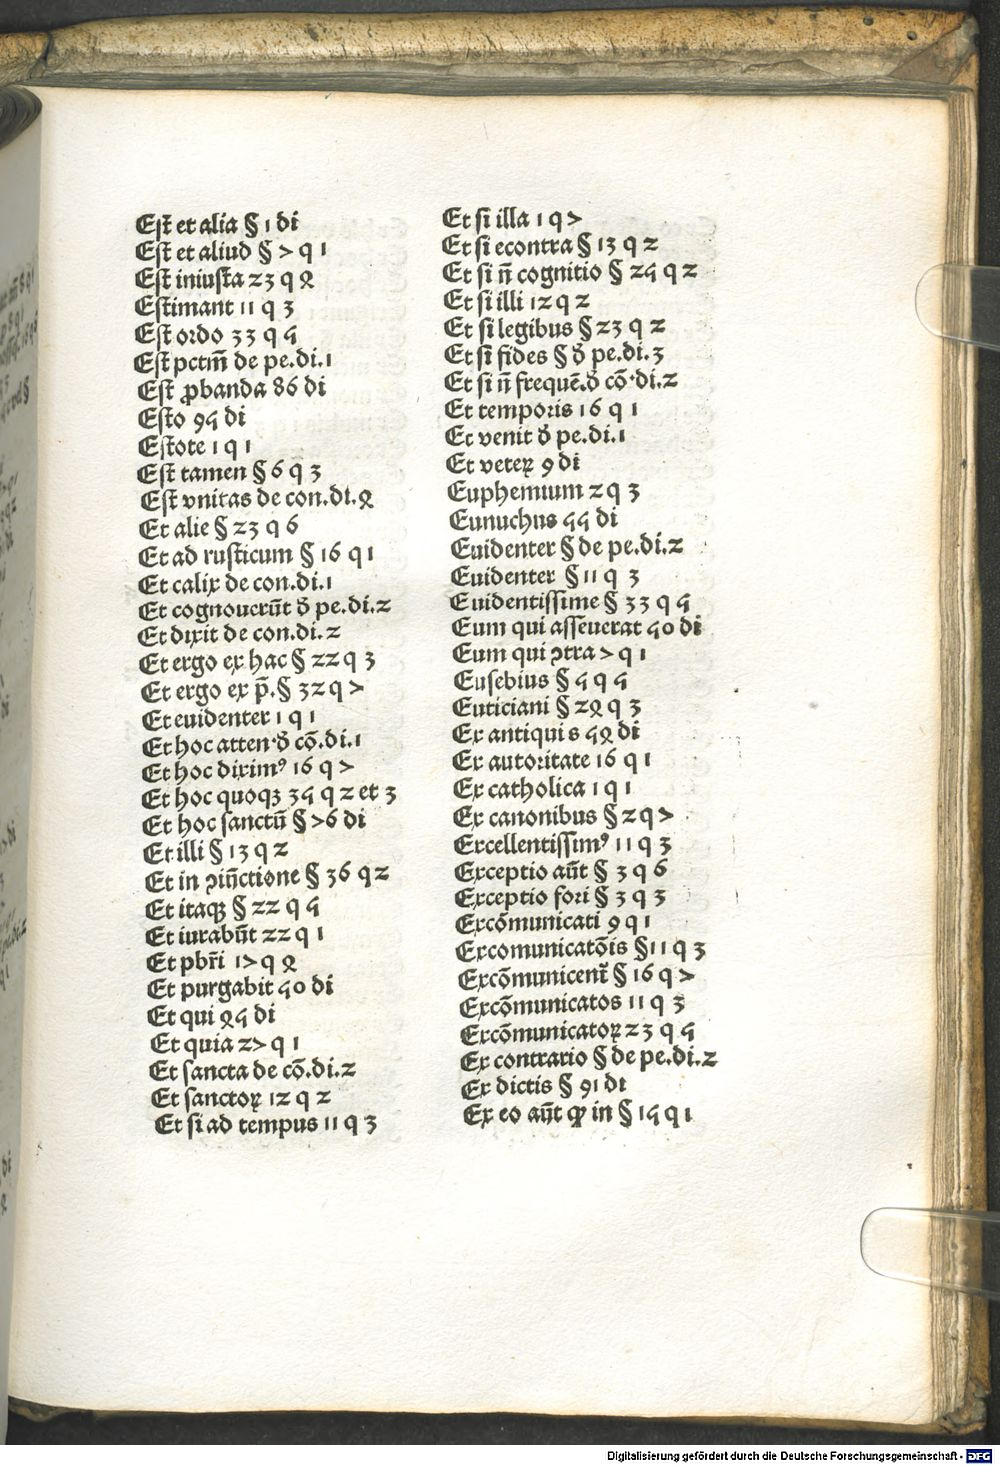 Est et alia § 1 di
Est et aliud § 7 q 1
Est iniusta 23 q 8
Estimant 11 q 3
Est ordo 33 q 4
Est pctm̄ de pe.di.1
Est ꝓbanda 86 di
Esto 94 di
Estote 1 q 1
Est tamen § 6 q 3
Est vnitas de con.di.8
Et alie § 23 q 6
Et ad rusticum § 16 q 1
Et calix de con.di.1
Et cognouerūt đ pe.di.2
Et dixit de con.di.2
Et ergo ex hac § 22 q 3
Et ergo ex p̄.§ 32 q 7
Et euidenter 1 q 1
Et hoc atten.đ cō.di.1
Et hoc diximꝰ 16 q 7
Et hoc quoqꝫ 34 q 2 et 3
Et hoc sanctū § 76 di
Et illi § 13 q 2
Et in ꝯiūctione § 36 q 2
Et itaqꝫ § 22 q 4
Et iurabūt 22 q 1
Et pbr̄i 17 q 8
Et purgabit 40 di
Et qui 84 di
Et quia 27 q 1
Et sancta de cō.di.2
Et sanctoꝝ 12 q 2
Et si ad tempus 11 q 3
Et si illa 1 q 7
Et si econtra § 13 q 2
Et si n̄ cognitio § 24 q 2
Et si illi 12 q 2
Et si legibus § 23 q 2
Et si fides § đ pe.di.3
Et si n̄ frequē.đ cō.di.2
Et temporis 16 q 1
Et venit đ pe.di.1
Et veteꝝ 9 di
Euphemium 2 q 3
Eunuchus 44 di
Euidenter § de pe.di.2
Euidenter § 11 q 3
Euidentissime § 33 q 4
Eum qui asseuerat 40 di
Eum qui ꝯtra 7 q 1
Eusebius § 4 q 4
Euticiani § 28 q 3
Ex antiquis 48 di
Ex autoritate 16 q 1
Ex catholica 1 q 1
Ex canonibus § 2 q 7
Excellentissimꝰ 11 q 3
Exceptio aūt § 3 q 6
Exceptio fori § 3 q 3
Excōmunicati 9 q 1
Excomunicatōis § 11 q 3
Excōmunicent̄ § 16 q 7
Excōmunicatos 11 q 3
Excōmunicatoꝝ 23 q 4
Ex contrario § de pe.di.2
Ex dictis § 91 di
Ex eo aūt ꝙ in § 14 q 1
Digitalisierung gefördert durch die Deutsche Forschungsgemeinschaft - DFG